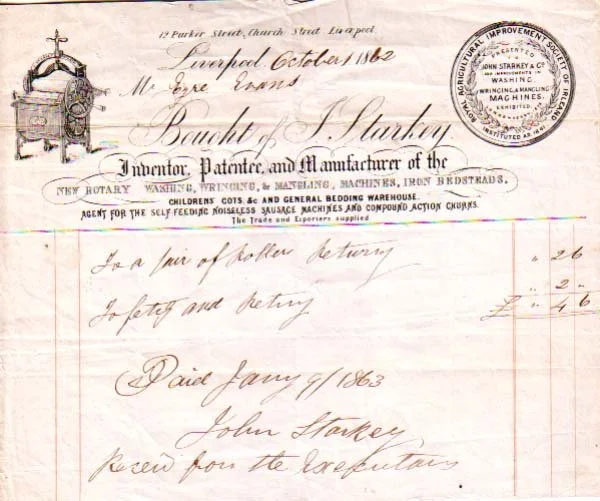 12 Parker Street, Church Street Liverpool
Liverpool October 1 1862
Mr Eyre Evans
Bought of J. Starkey,
Inventor, Patentee, and Manufacturer of the
NEW ROTARY WASHING, WRINGING, & MANGLING, MACHINES, IRON BEDSTEADS.
CHILDRENS' COTS, &c AND GENERAL BEDDING WAREHOUSE.
AGENT FOR THE SELF FEEDING NOISELESS SAUSAGE MACHINES AND COMPOUND ACTION CHURNS.
The Trade and Exporters supplied
ROYAL AGRICULTURAL IMPROVEMENT SOCIETY OF IRELAND
PRESENTED
TO
JOHN STARKEY & Co
FOR IMPROVEMENTS IN
WASHING,
WRINGING & MANGLING
MACHINES.
EXHIBITED.
INSTITUTED AD 1841
To a pair of Rollers " 2 6
" 2 "
To fetig and Retng £ " 4 6
Paid Jany 9/1863
John Starkey
Receid from the Executors